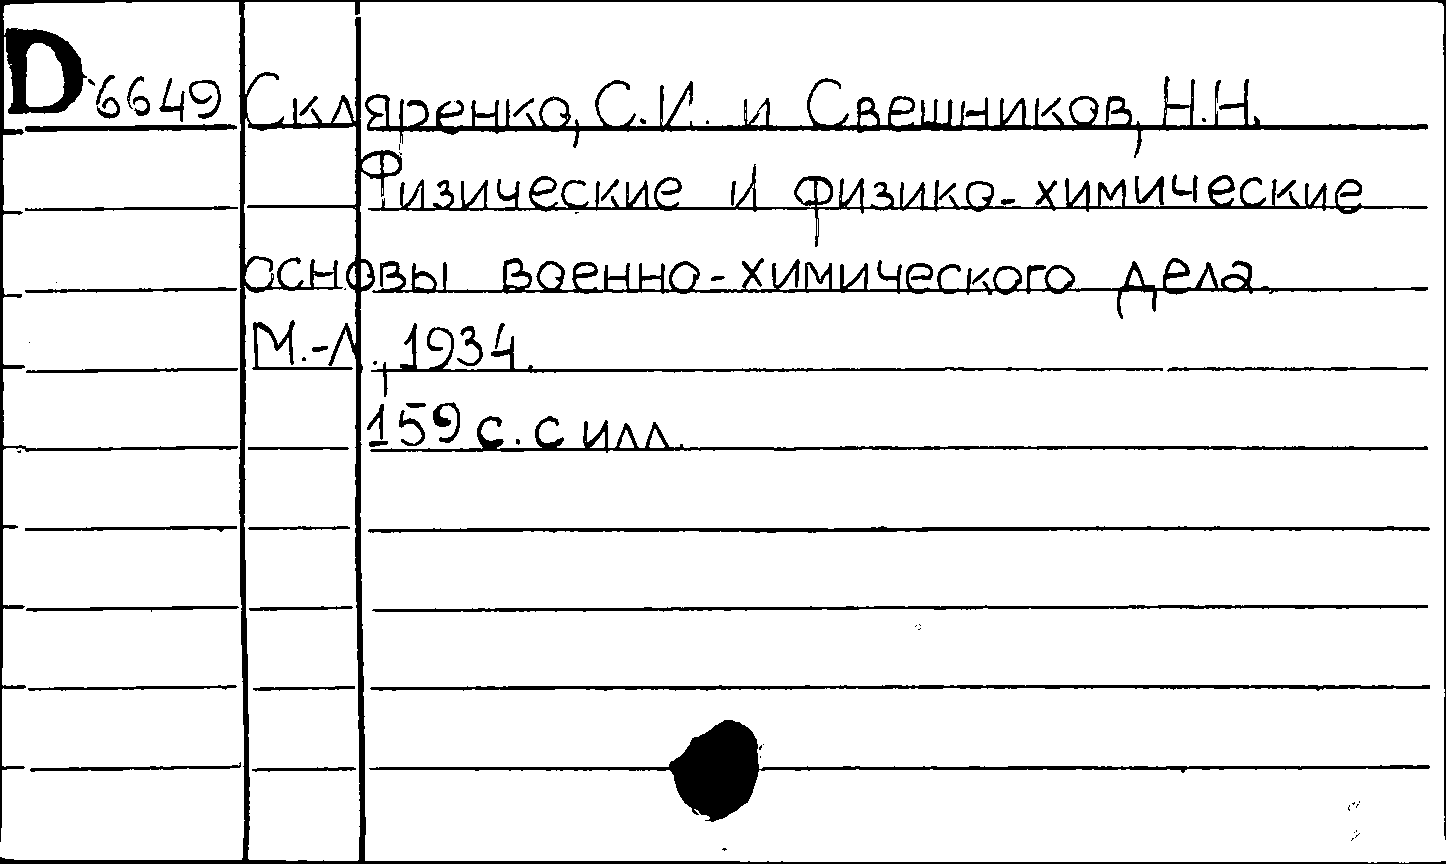 D 6649 Скляренко, С.И. и Свешников, Н.Н.
Физические и физико-химические
основы военно-химического дела.
М.-Л., 1934.
159 с. с илл.